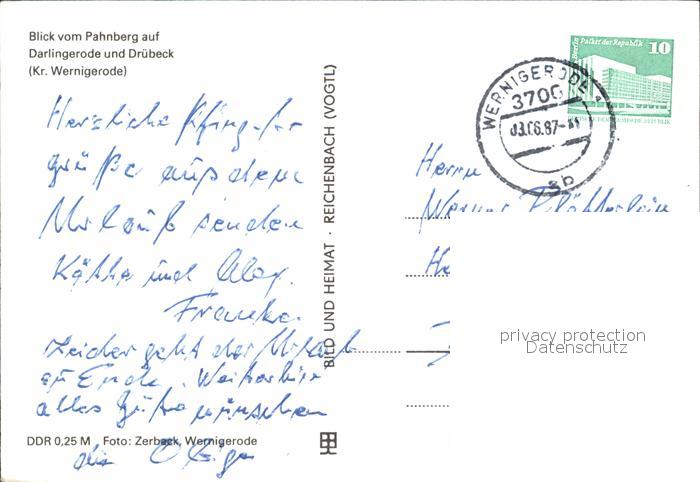 Blick vom Pahnberg auf
Darlingerode und Drübeck
(Kr. Wernigerode)
Herzliche Pfingst-
grüße aus dem
Urlaub senden
Käthe und Alex.
Franke.
Leider geht der Urlaub
zu Ende. Weiterhin
alles Gute wünschen
die Obigen
DDR 0,25 M Foto: Zerback, Wernigerode
BILD UND HEIMAT · REICHENBACH (VOGTL)
Berlin Palast der Republik 10
DEUTSCHE DEMOKRATISCHE REPUBLIK
WERNIGERODE 1
3700
03.06.87
sb
Herrn
Werner
privacy protection
Datenschutz